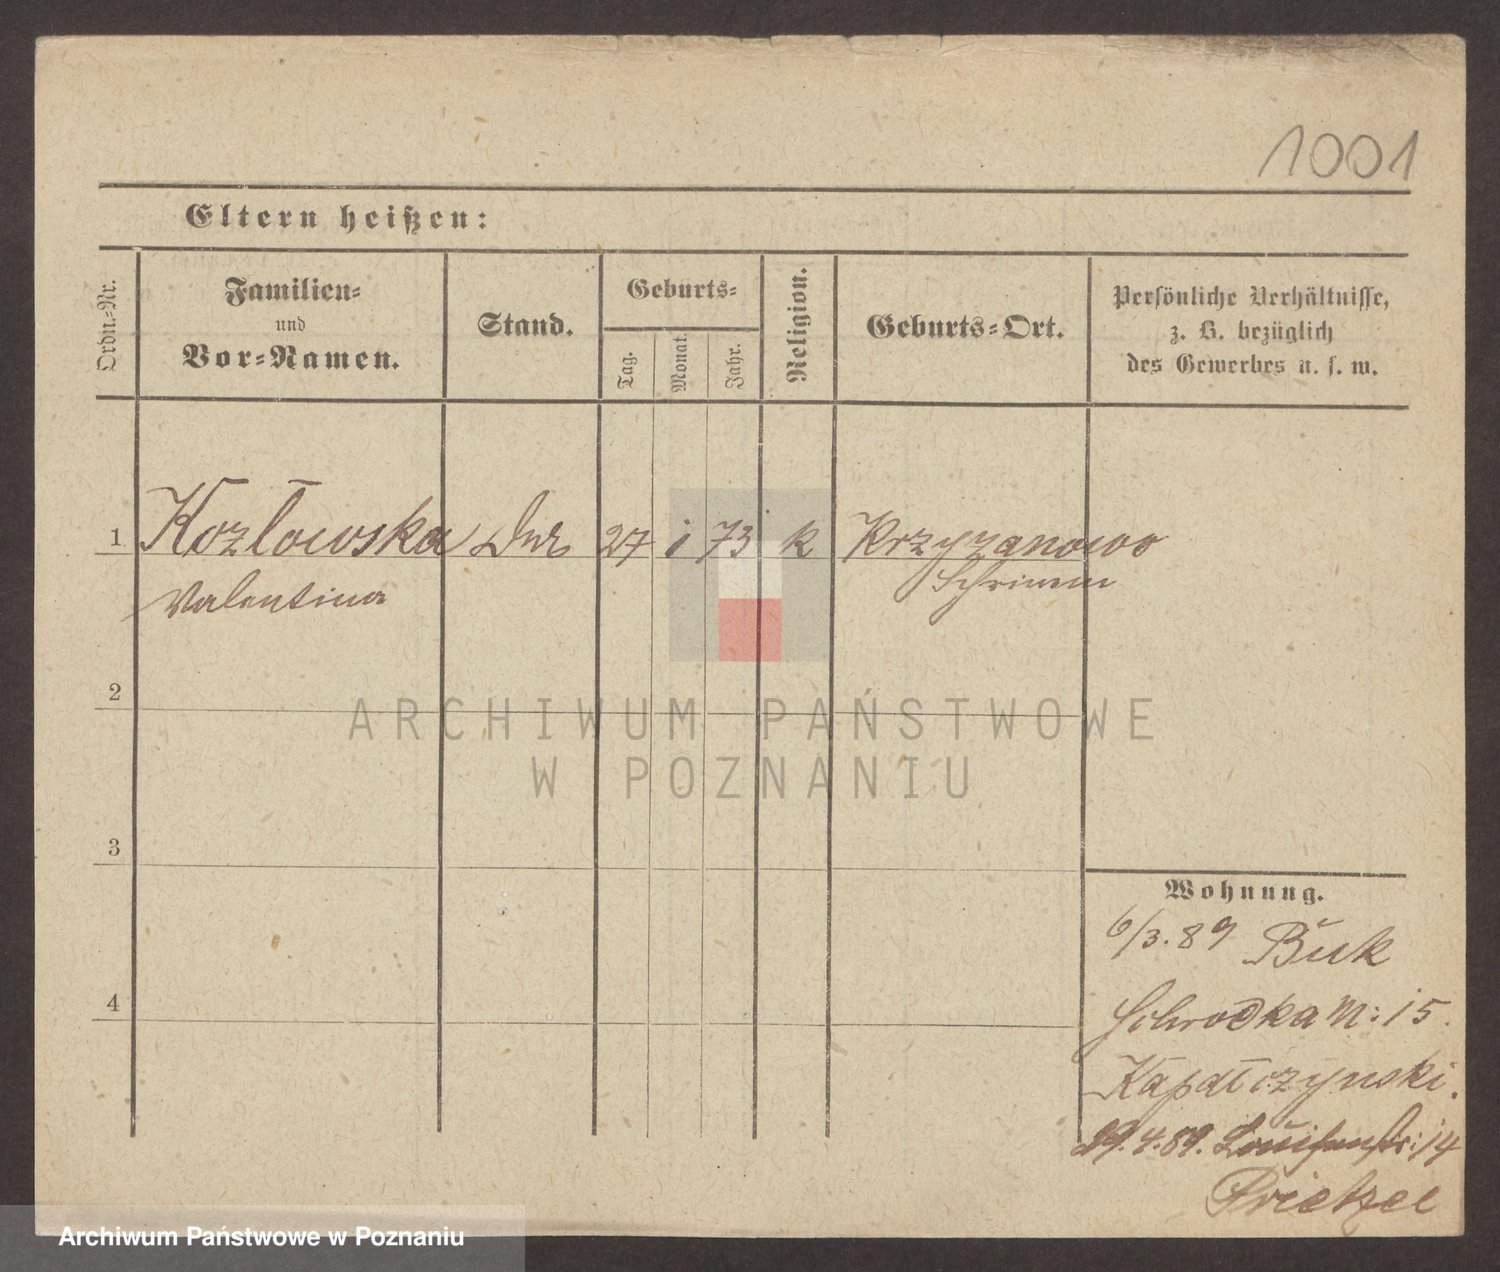 1001
Eltern heißen:
Ordn.-Nr.
Familien-
und
Vor-Namen.
Stand.
Geburts-
Tag.
Monat.
Jahr.
Religion.
Geburts-Ort.
Persönliche Verhältnisse,
z. B. bezüglich
des Gewerbes u. s. w.
1 Kozłowska 27 1 73 k Krzyzanowo
Valentina Schrimm
2
3
4
Wohnung.
6/3.89 Buk
Schrodka N: 15.
29.4.89. Louisenstr: 14
Prietzel
ARCHIWUM PAŃSTWOWE
W POZNANIU
Archiwum Państwowe w Poznaniu